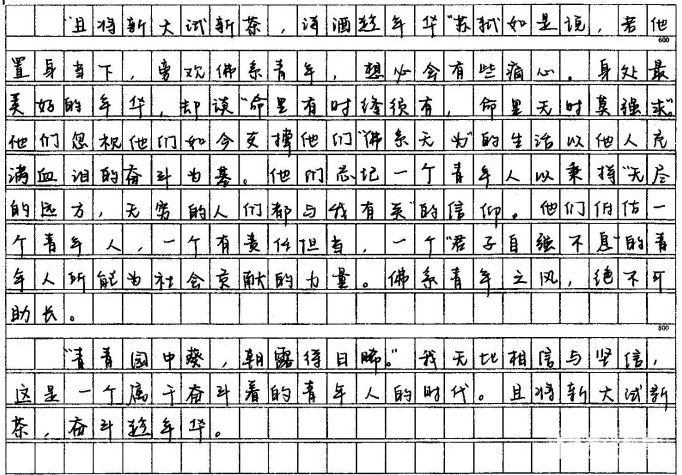 “且将新火试新茶，诗酒趁年华”苏轼如是说，若他
600
置身当下，旁观佛系青年，想必会有些痛心。身处最
美好的年华，却谈“命里有时终须有，命里无时莫强求”。
他们忽视他们如今支撑他们“佛系无为”的生活以他人充
满血泪的奋斗为基。他们忘记一个青年人以秉持“无尽
的远方，无穷的人们都与我有关”的信仰。他们低估一
个青年人，一个有责任担当，一个“君子自强不息”的青
年人所能为社会贡献的力量。佛系青年之风，绝不可
助长。
800
“青青园中葵，朝露待日晞。”我无比相信与坚信，
这是一个属于奋斗着的青年人的时代。且将新火试新
茶，奋斗趁年华。